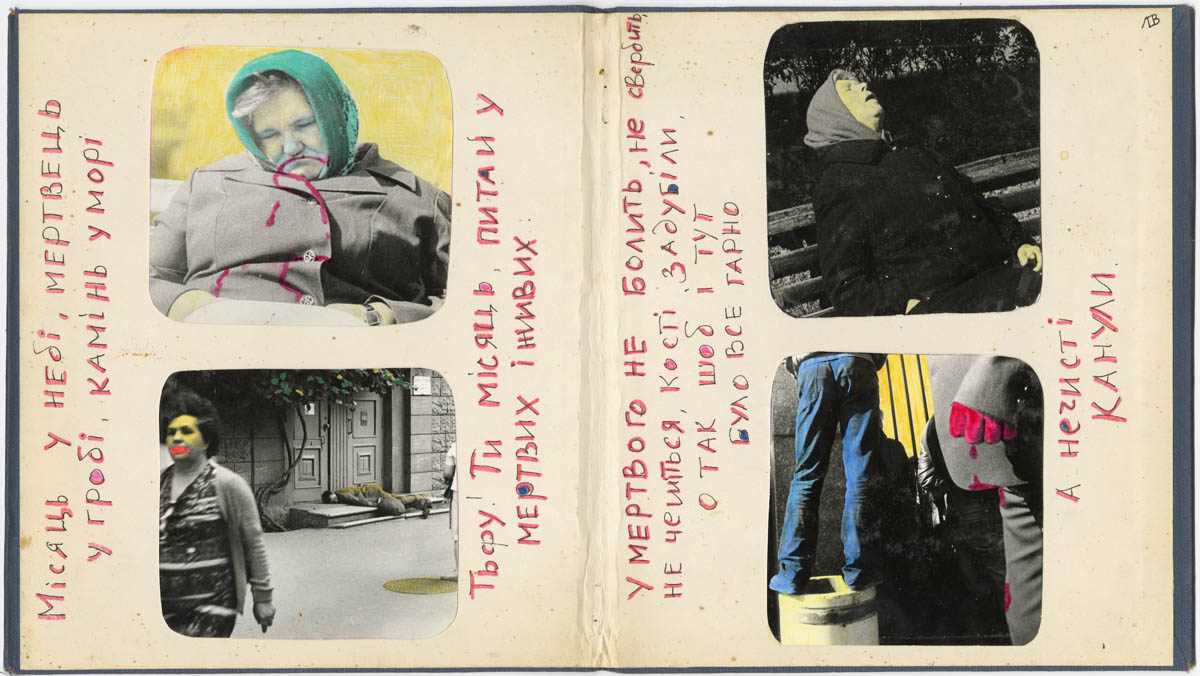 Місяць у небі, мертвець
у гробі, камінь у морі
Тьфу! Ти місяць, питай у
мертвих і живих:
У мертвого не болить, не свербить,
не чешться, кості задубіли,
о так щоб і тут
було все гарно
а нечисті
канули.